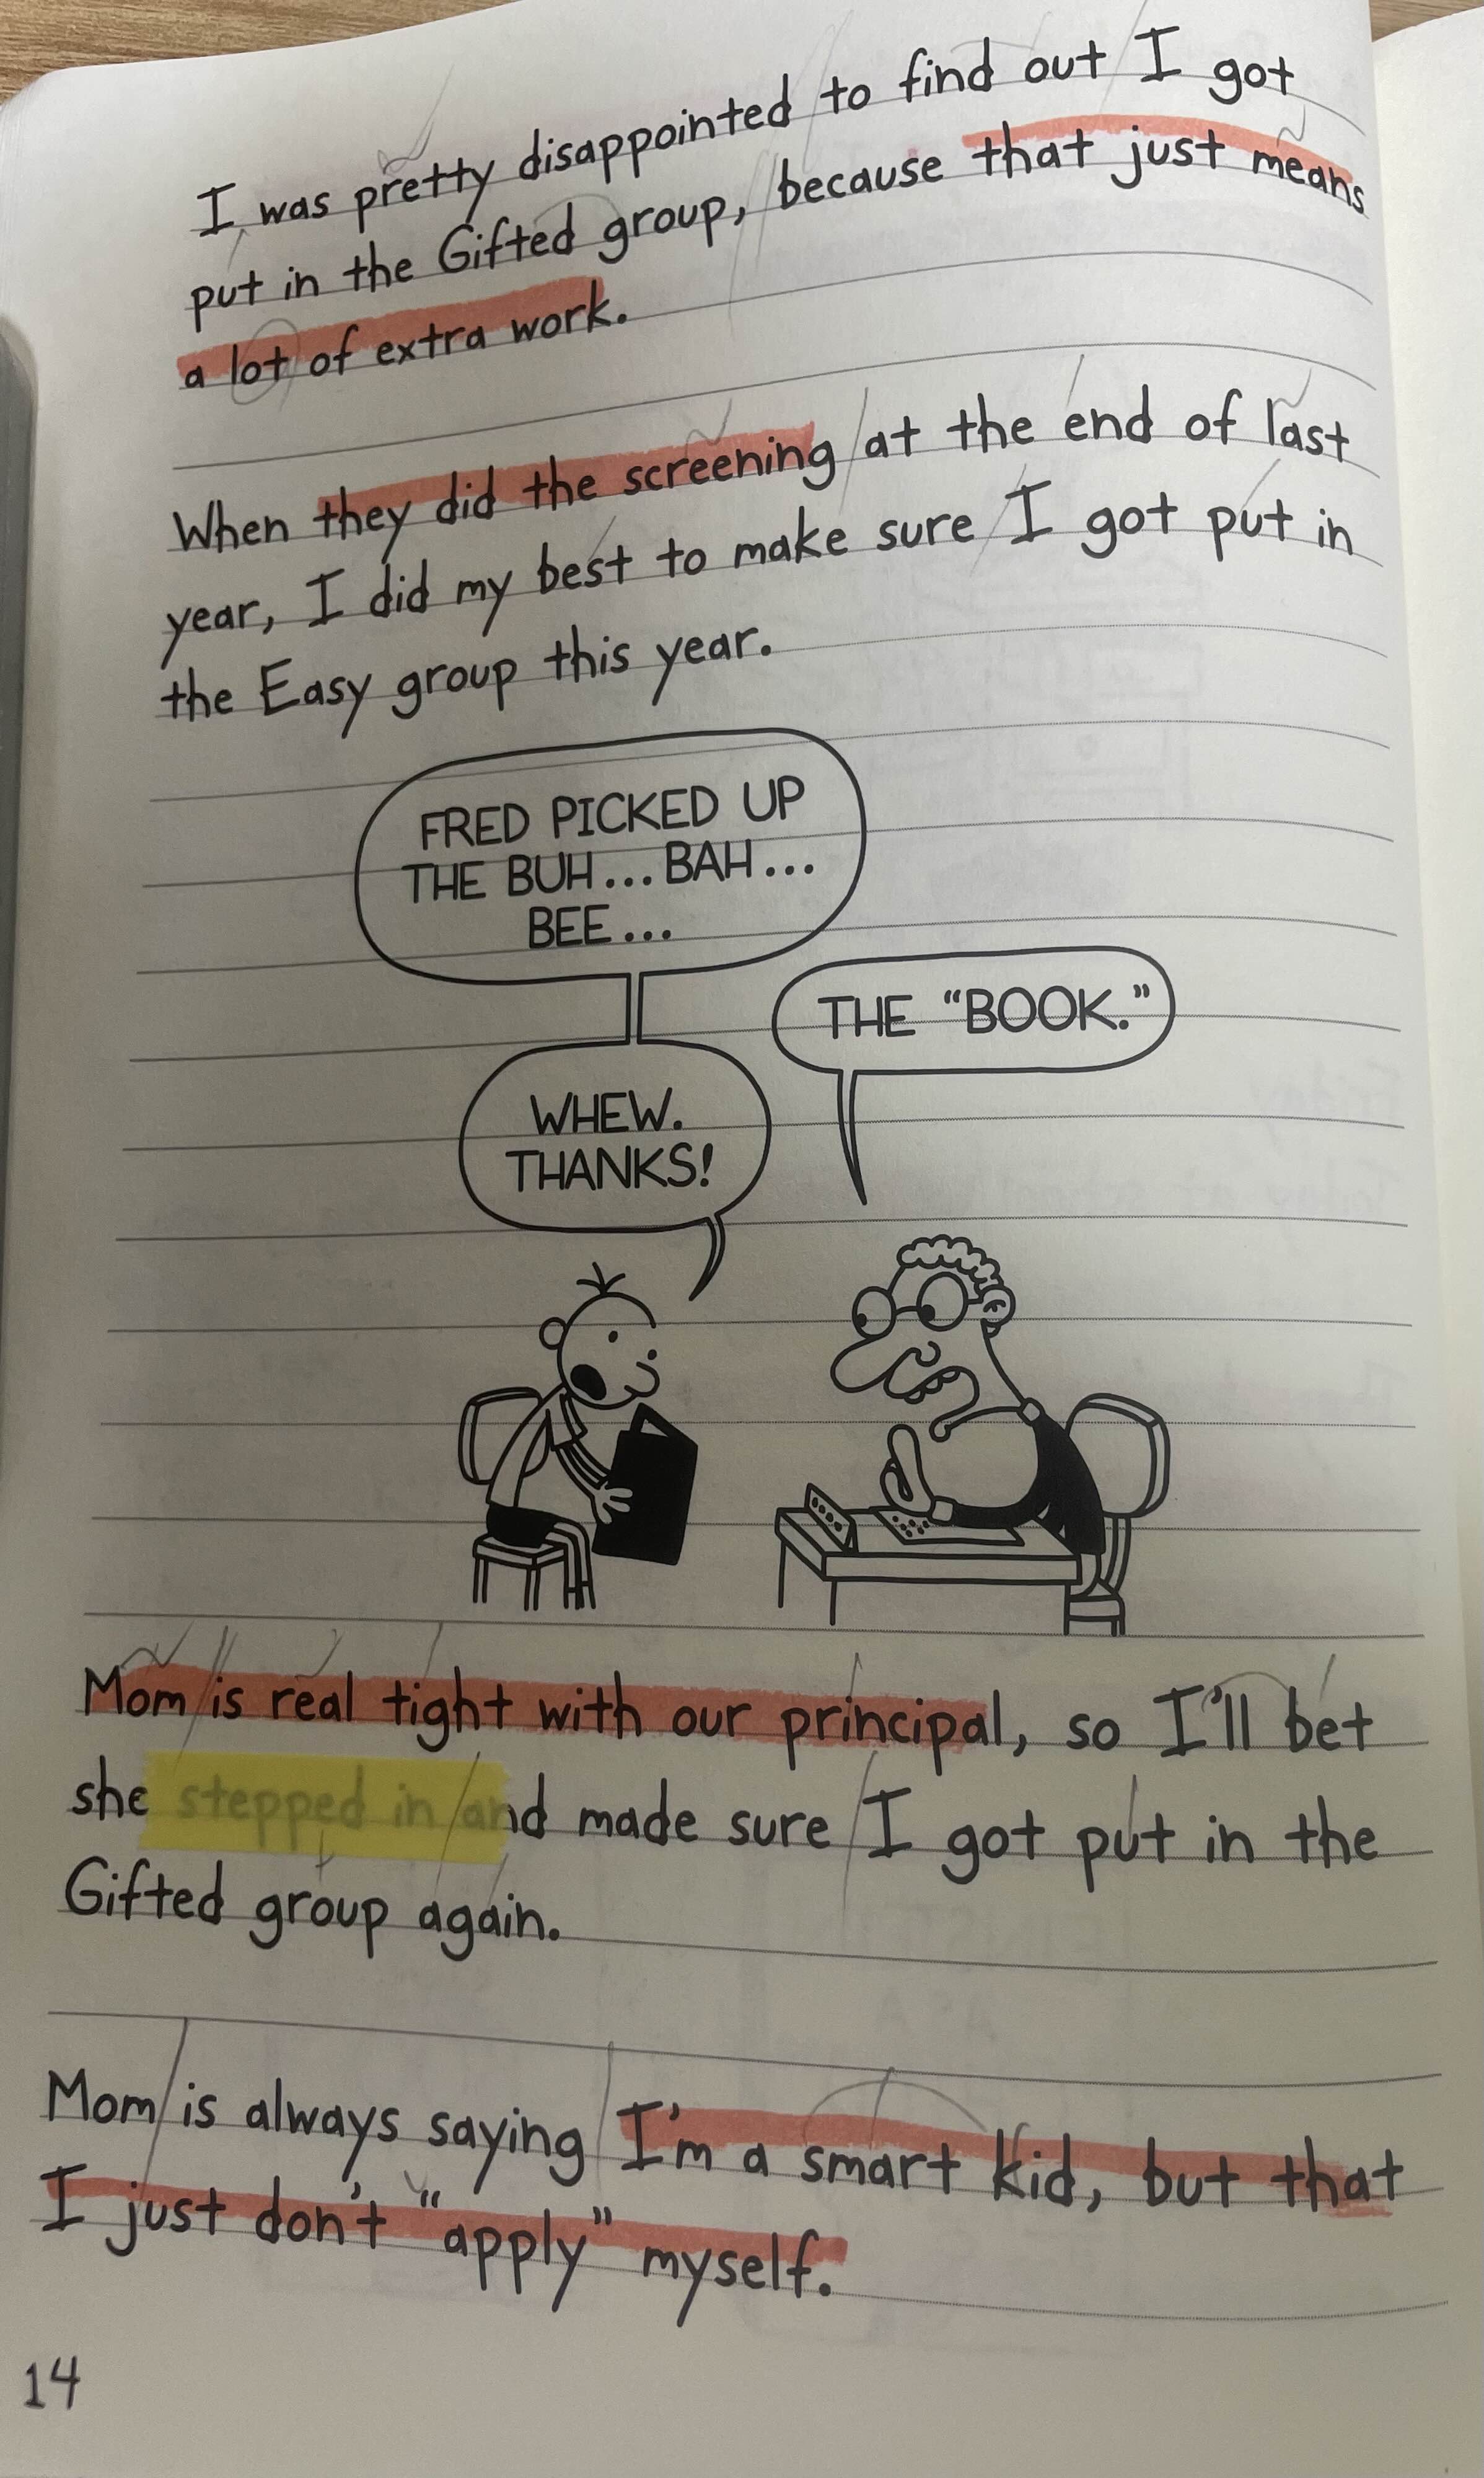 I was pretty disappointed to find out I got
put in the Gifted group, because that just means
a lot of extra work.
When they did the screening at the end of last
year, I did my best to make sure I got put in
the Easy group this year.
FRED PICKED UP
THE BUH... BAH...
BEE...
THE "BOOK."
WHEW.
THANKS!
Mom is real tight with our principal, so I'll bet
she stepped in and made sure I got put in the
Gifted group again.
Mom is always saying I'm a smart kid, but that
I just don't "apply" myself.
14